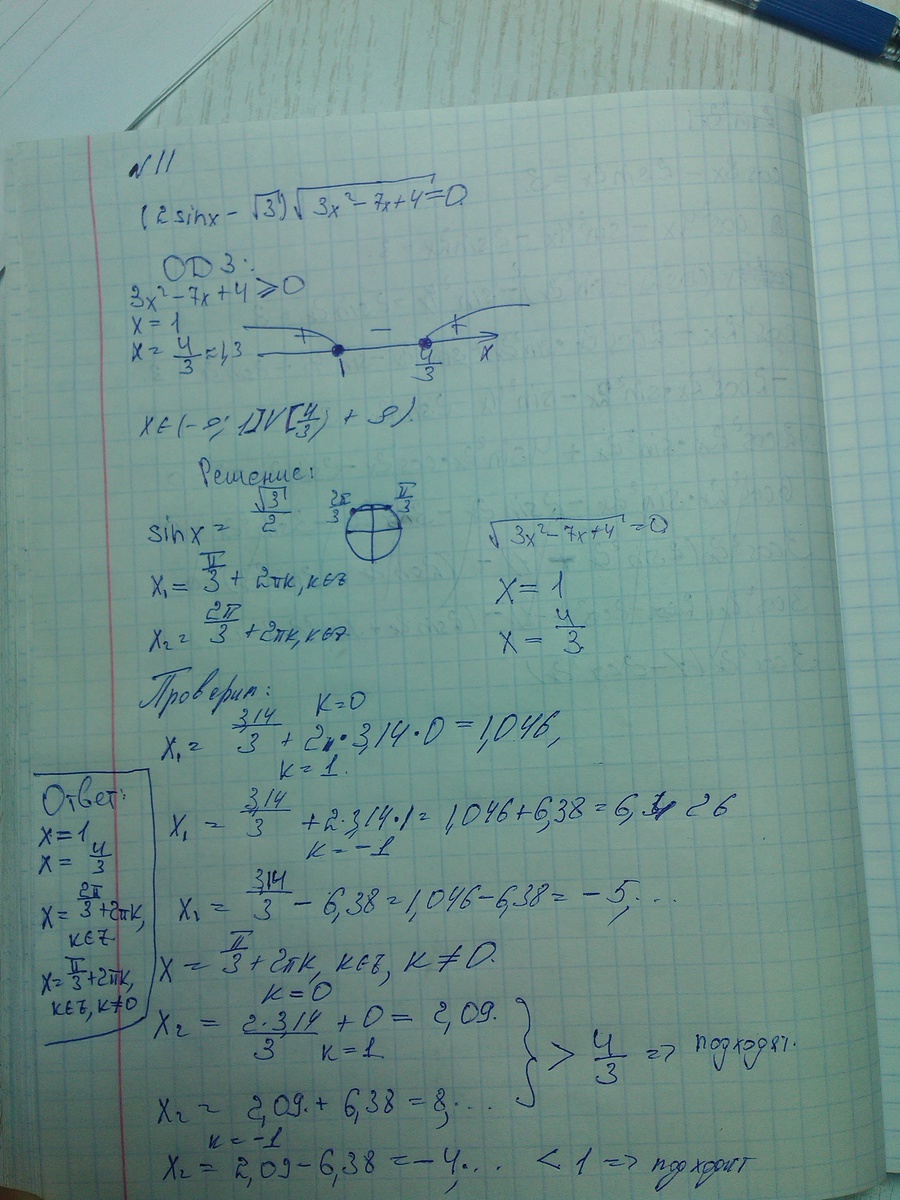 №11
(2sinx - √3)√(3x²-7x+4) = 0
ОДЗ:
3x²-7x+4 ⩾ 0
x = 1
x = 4/3 ≈ 1,3
+ - +
1 4/3 x
x ∈ (-∞; 1] V [4/3; +∞)
Решение:
sinx = √3/2
2π/3 π/3
x₁ = π/3 + 2πk, k∈z
x₂ = 2π/3 + 2πk, k∈z
√(3x²-7x+4) = 0
x = 1
x = 4/3
Проверим:
k=0
x₁ = 3,14/3 + 2·3,14·0 = 1,046,
k=1.
x₁ = 3,14/3 + 2·3,14·1 = 1,046+6,38 = 6,
k=-1
x₁ = 3,14/3 - 6,38 = 1,046-6,38 = -5,...
x = π/3 + 2πk, k∈z, k≠0.
k=0
x₂ = 2·3,14/3 + 0 = 2,09.
k=1
x₂ = 2,09 + 6,38 = 8,...
> 4/3 => подходят.
k=-1
x₂ = 2,09-6,38 = -4,... < 1 => подходит
Ответ:
x=1
x = 4/3
x = 2π/3 + 2πk,
k∈z
x = π/3 + 2πk,
k∈z, k≠0